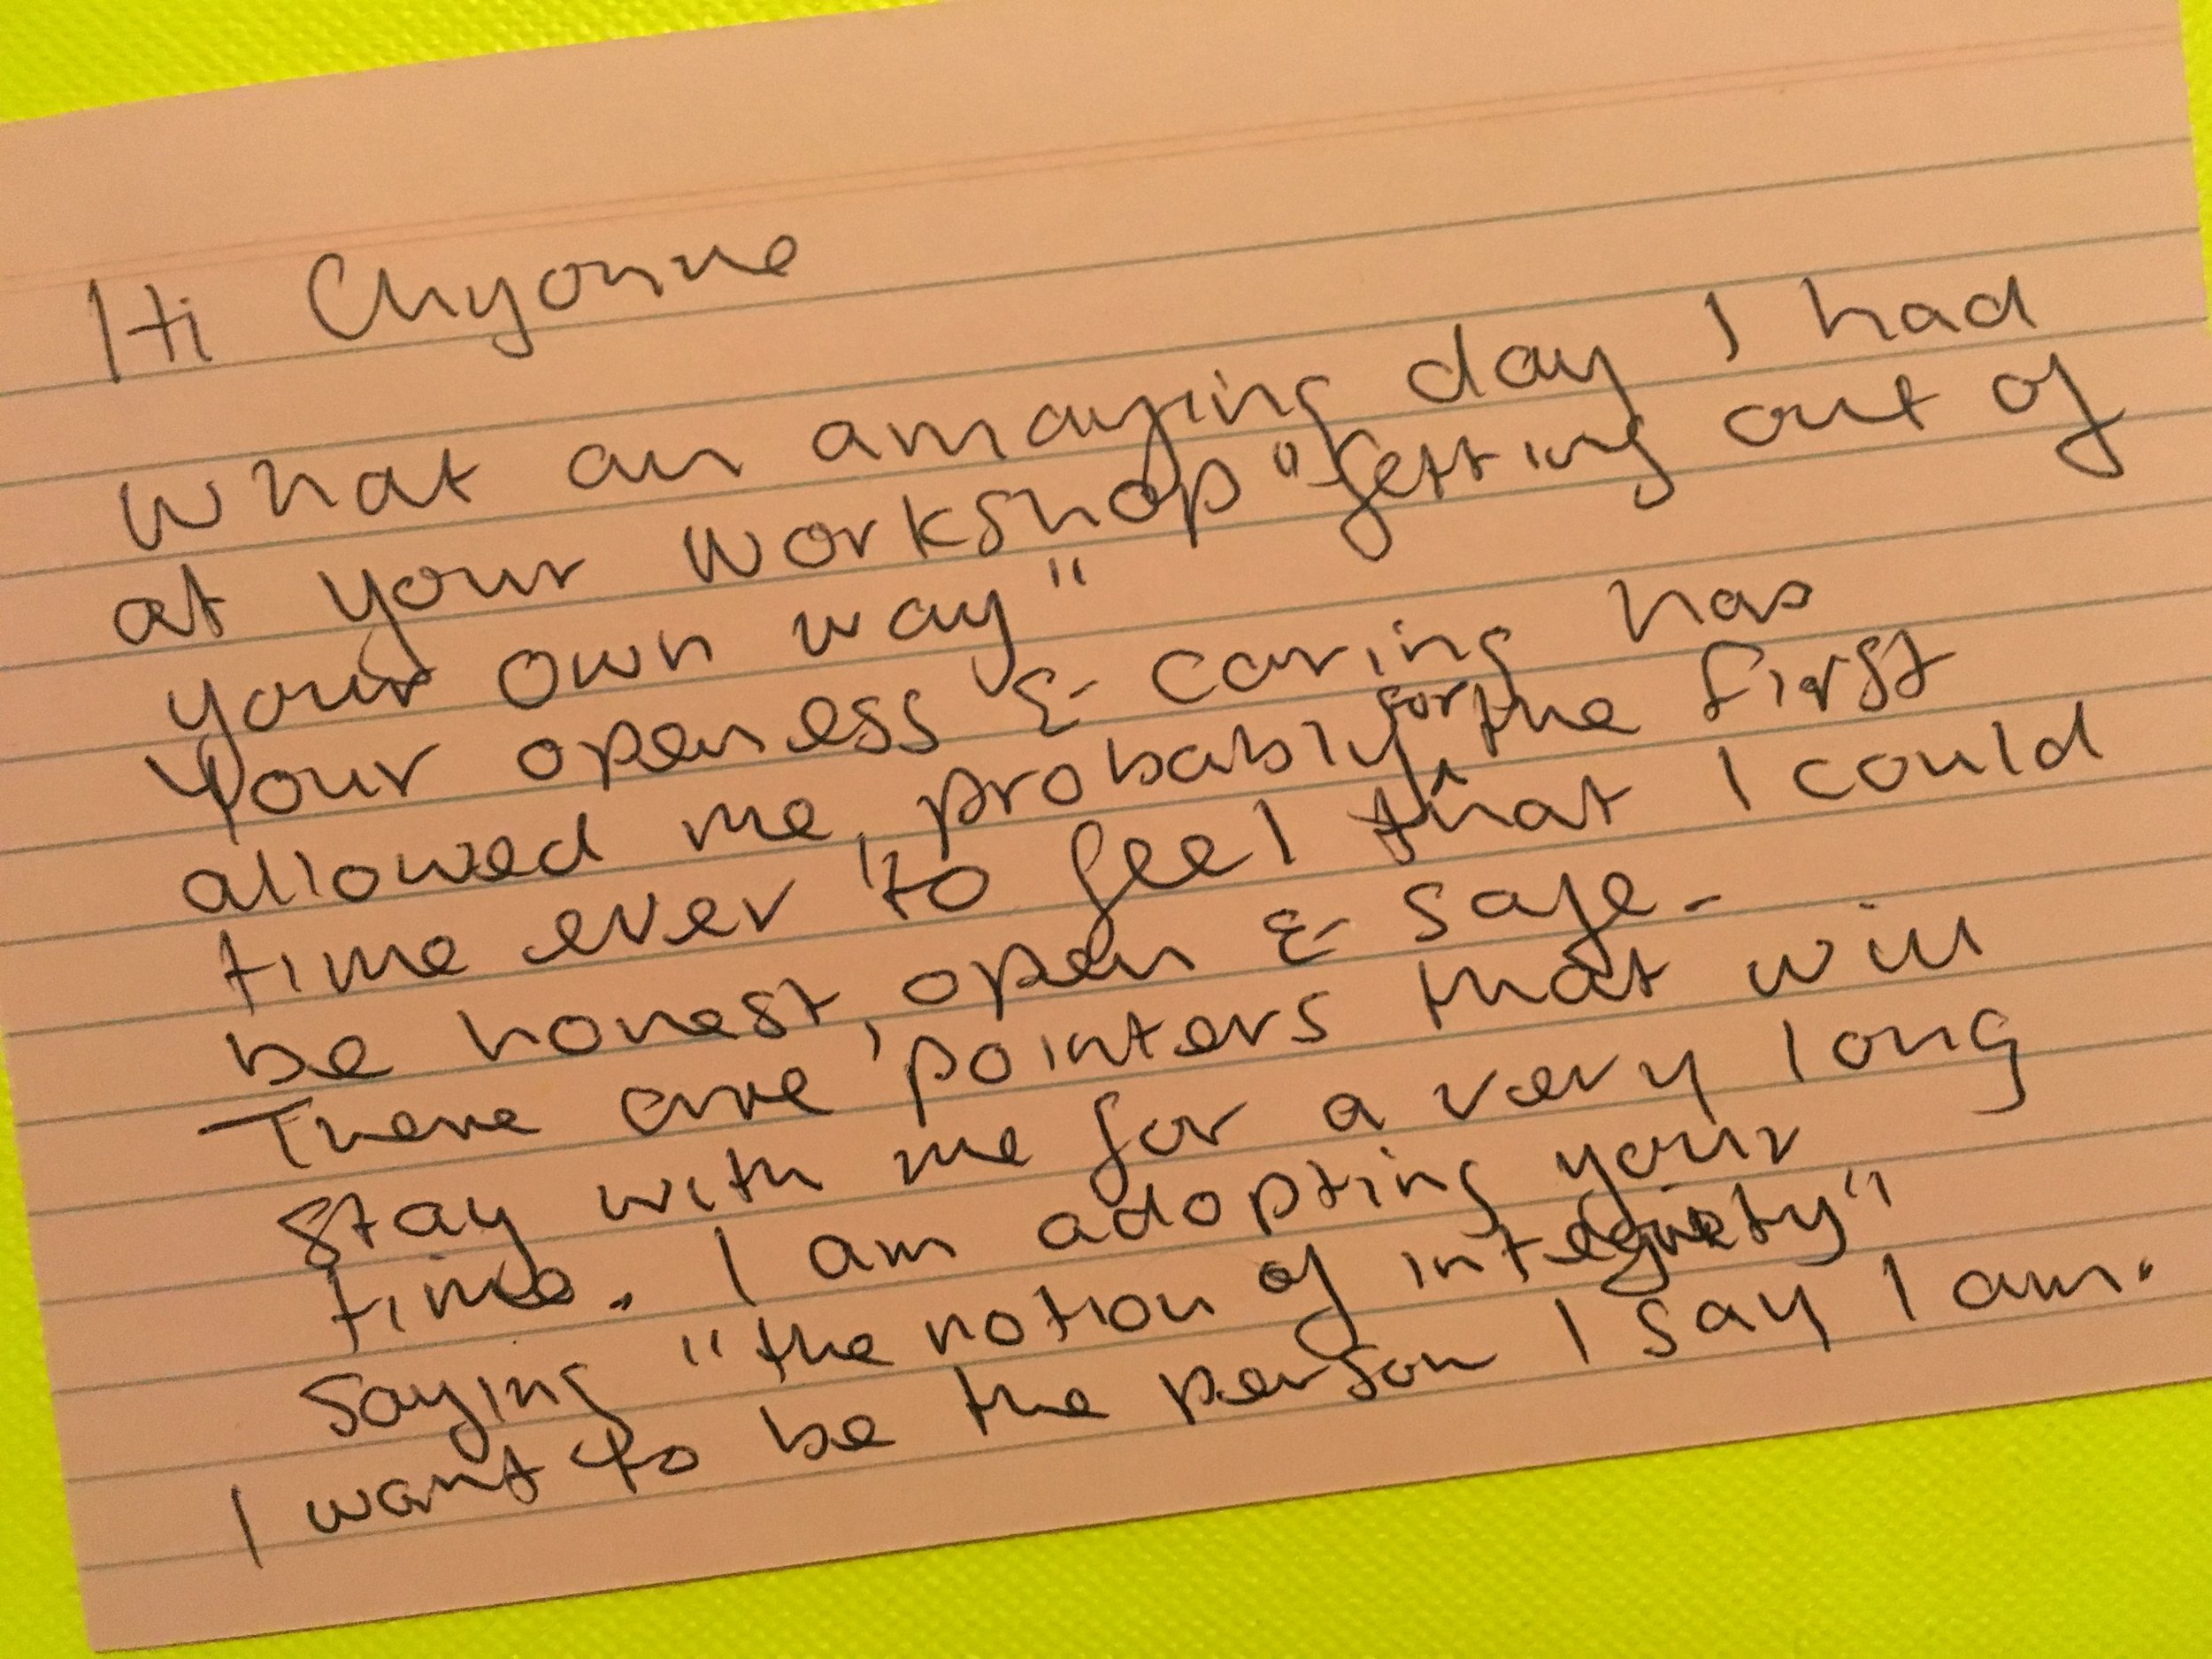 Hi Chyonne
What an amazing day I had
at your workshop "Getting out of
your own way"
Your openess & caring has
allowed me, probably for the first
time ever to feel that I could
be honest, open & safe.
There are pointers that will
stay with me for a very long
time. I am adopting your
saying "the notion of integrety"
I want to be the person I say I am.